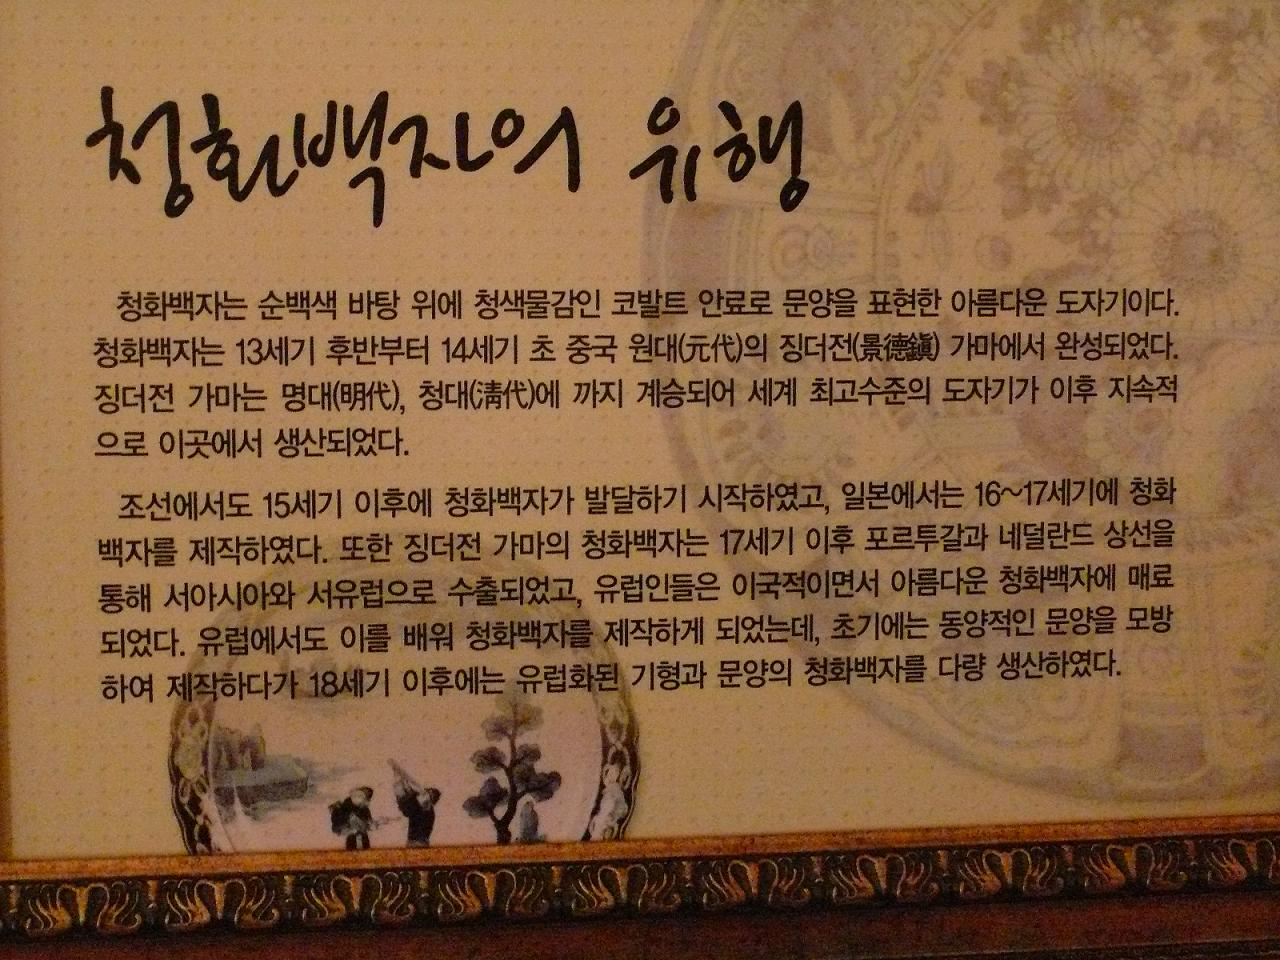 청화백자의 유행
청화백자는 순백색 바탕 위에 청색물감인 코발트 안료로 문양을 표현한 아름다운 도자기이다.
청화백자는 13세기 후반부터 14세기 초 중국 원대(元代)의 징더전(景德鎭) 가마에서 완성되었다.
징더전 가마는 명대(明代), 청대(淸代)에 까지 계승되어 세계 최고수준의 도자기가 이후 지속적
으로 이곳에서 생산되었다.
조선에서도 15세기 이후에 청화백자가 발달하기 시작하였고, 일본에서는 16~17세기에 청화
백자를 제작하였다. 또한 징더전 가마의 청화백자는 17세기 이후 포르투갈과 네덜란드 상선을
통해 서아시아와 서유럽으로 수출되었고, 유럽인들은 이국적이면서 아름다운 청화백자에 매료
되었다. 유럽에서도 이를 배워 청화백자를 제작하게 되었는데, 초기에는 동양적인 문양을 모방
하여 제작하다가 18세기 이후에는 유럽화된 기형과 문양의 청화백자를 다량 생산하였다.